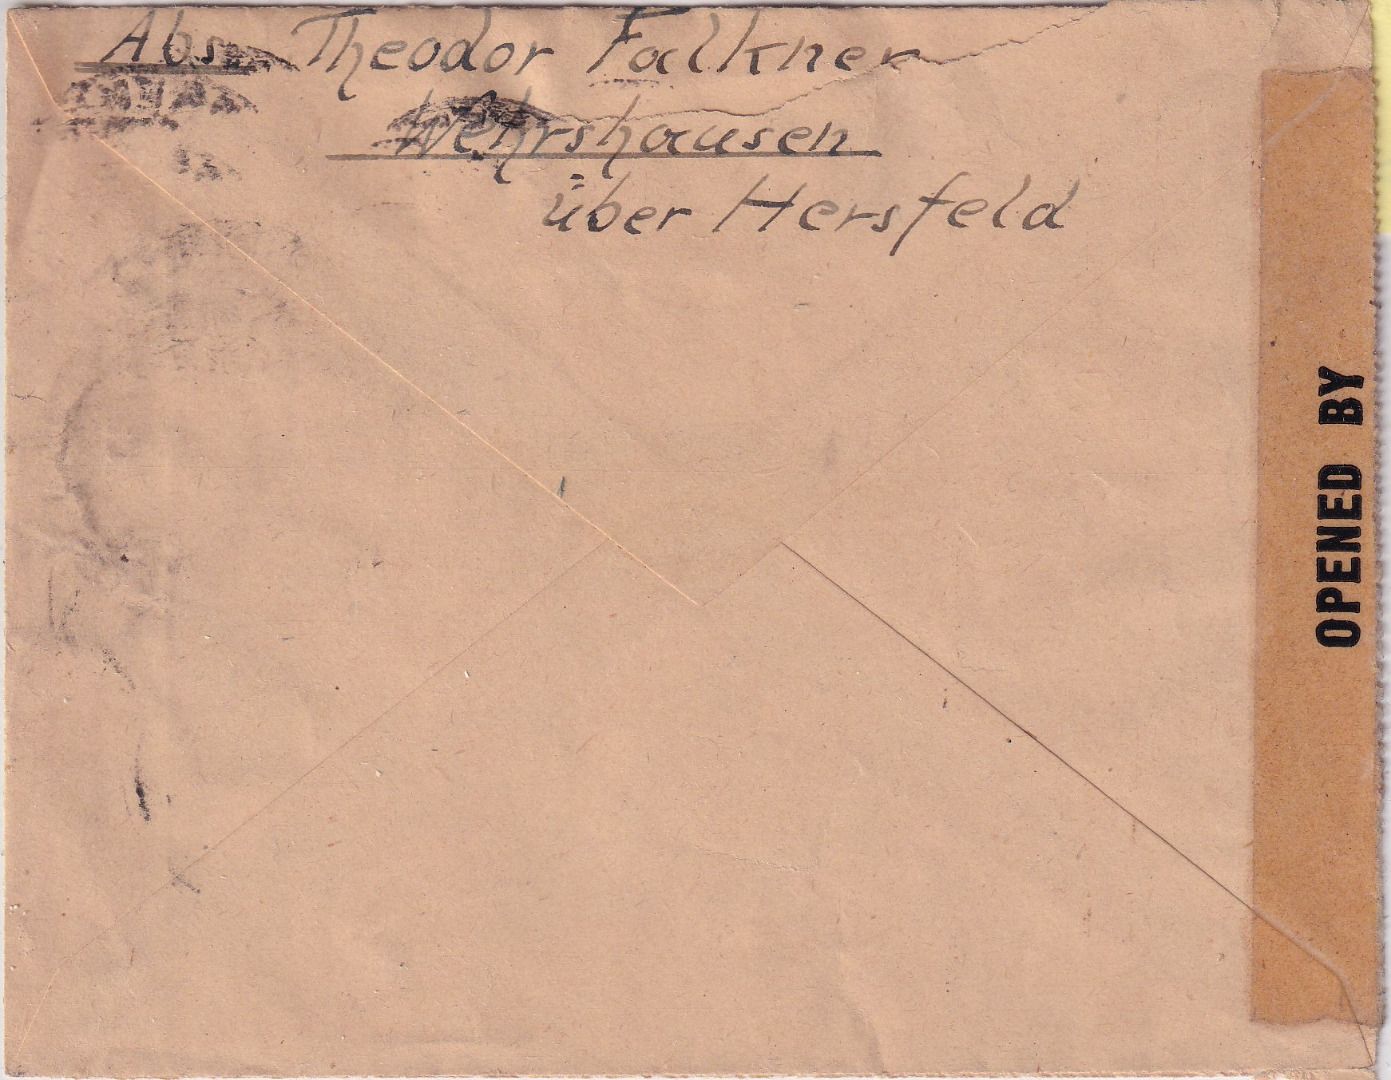 Abs. Theodor Falkner
Wehrshausen
über Hersfeld
OPENED BY